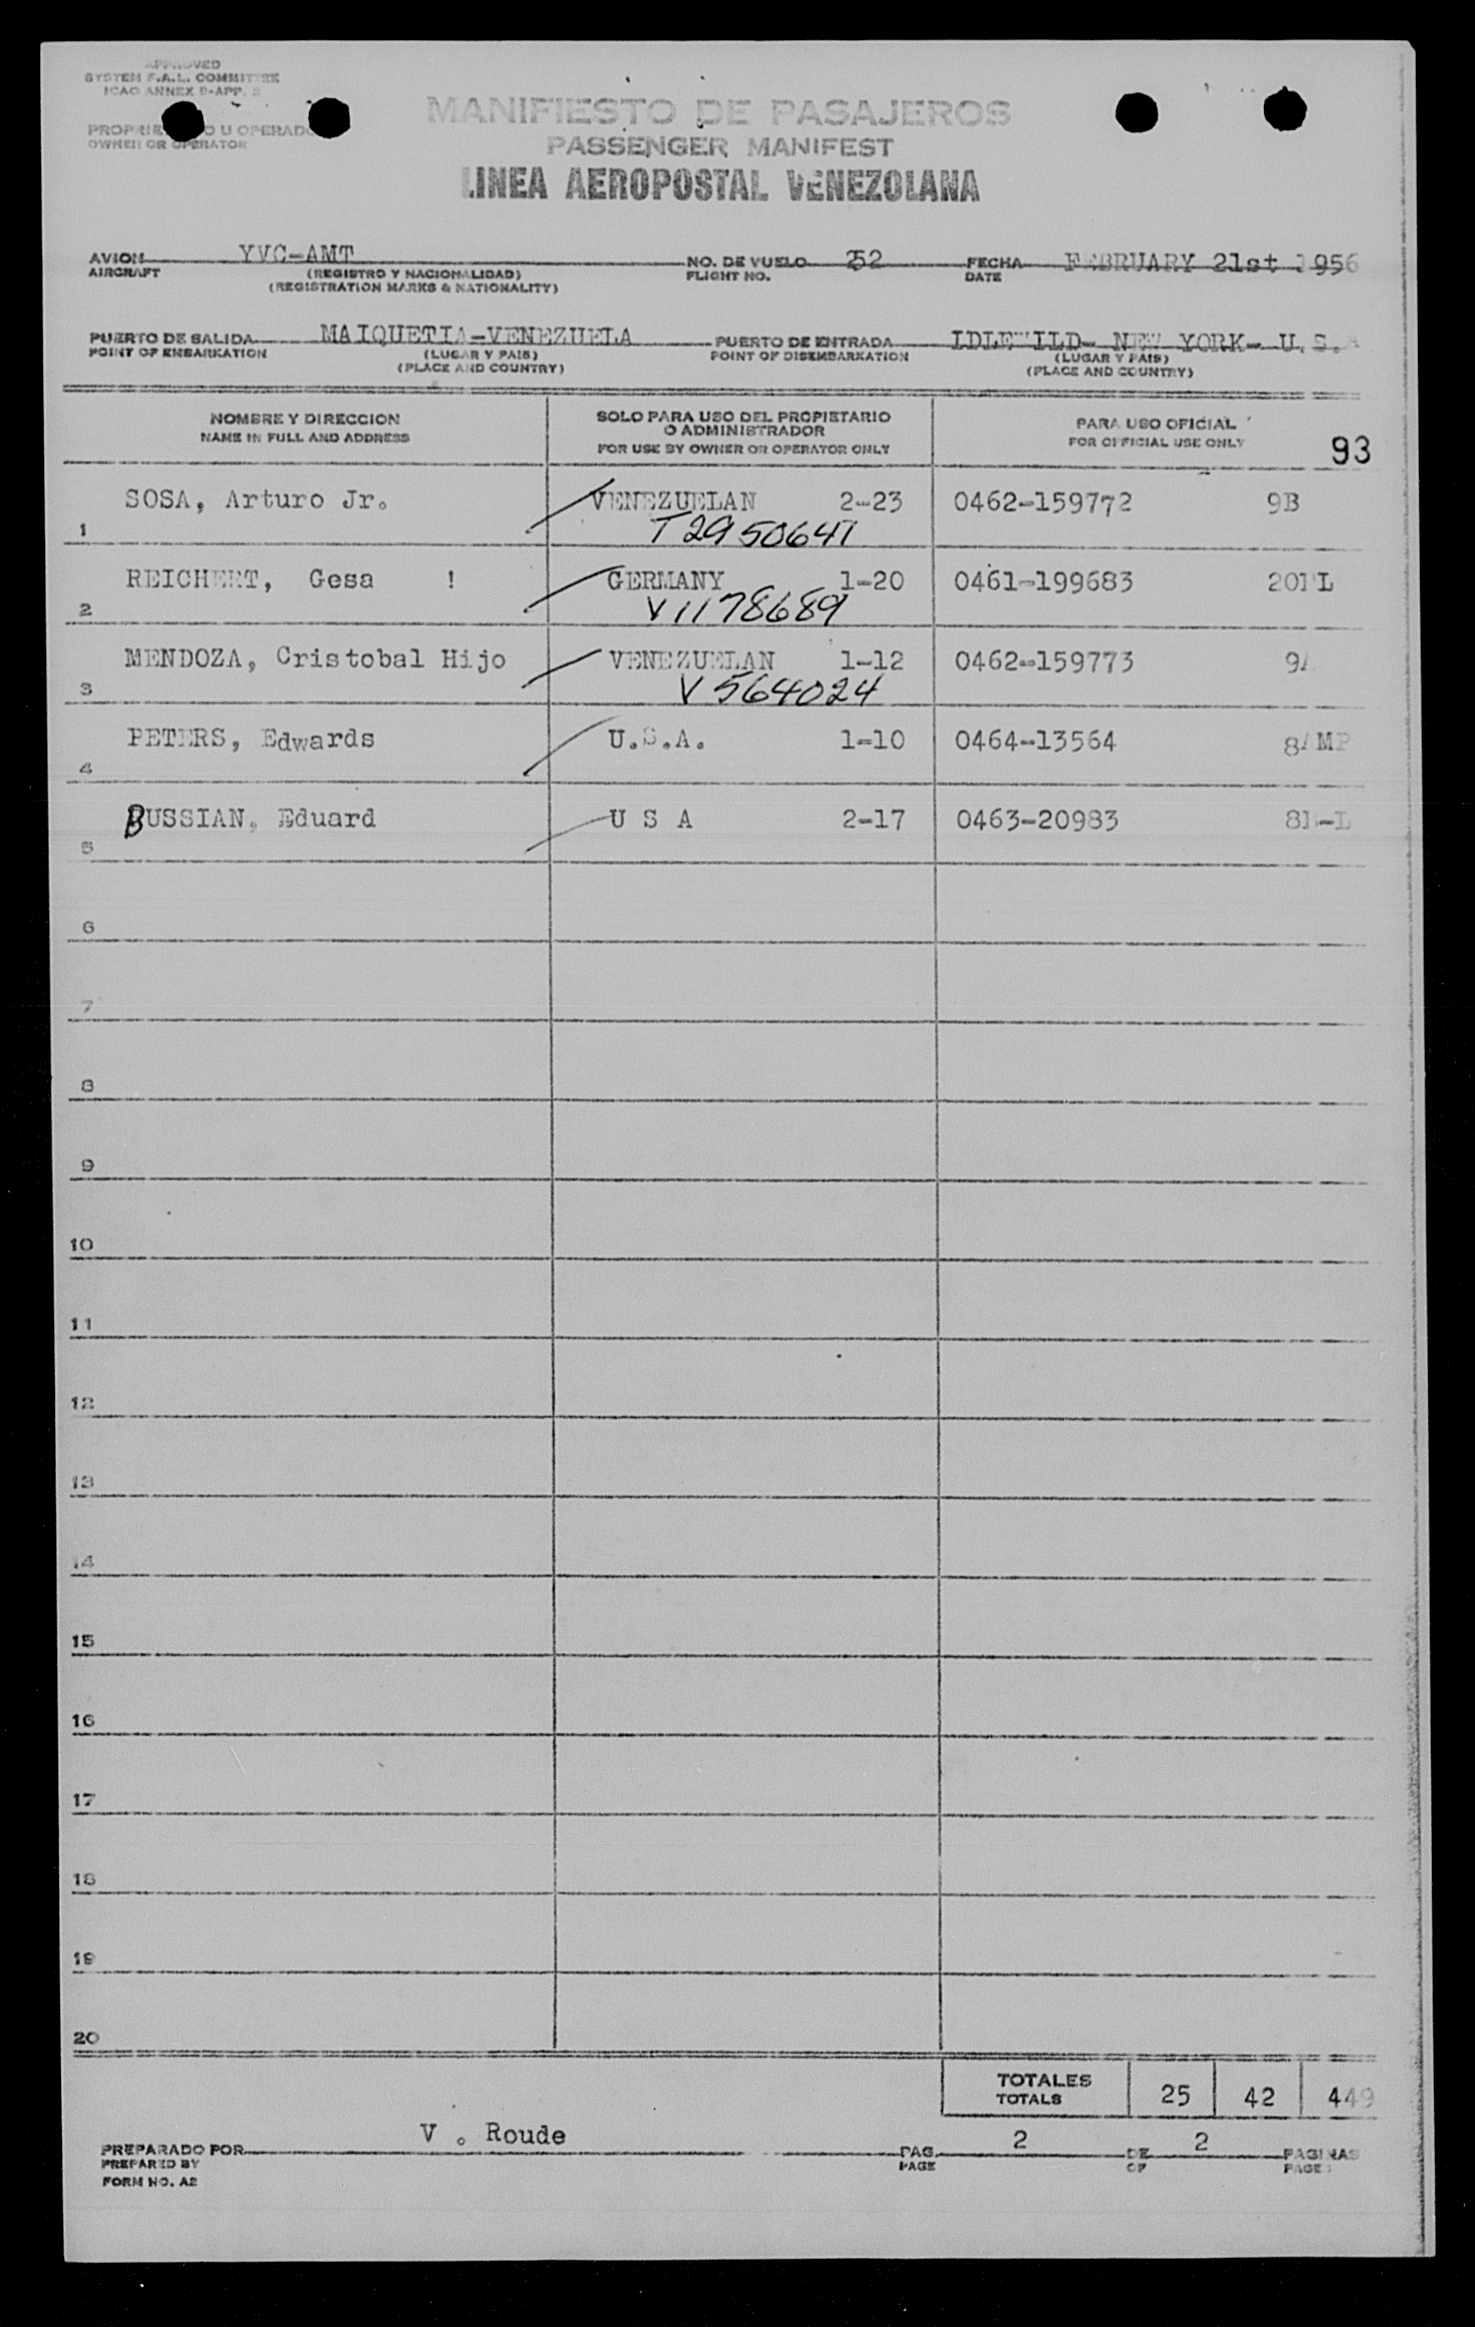 APPROVED
SYSTEM F.A.L. COMMITTEE
ICAO ANNEX 9-APP. 2
U OPERADOR
OWNER OR OPERATOR
MANIFIESTO DE PASAJEROS
PASSENGER MANIFEST
LINEA AEROPOSTAL VENEZOLANA
AVION YVC-AMT NO. DE VUELO 252 FECHA FEBRUARY 21st 1956
AIRCRAFT (REGISTRO Y NACIONALIDAD) FLIGHT NO. DATE
(REGISTRATION MARKS & NATIONALITY)
PUERTO DE SALIDA MAIQUETIA-VENEZUELA PUERTO DE ENTRADA IDLEWILD- NEW YORK- U.S.A
POINT OF EMBARKATION (LUGAR Y PAIS) POINT OF DISEMBARKATION (LUGAR Y PAIS)
(PLACE AND COUNTRY) (PLACE AND COUNTRY)
NOMBRE Y DIRECCION SOLO PARA USO DEL PROPIETARIO PARA USO OFICIAL
O ADMINISTRADOR
NAME IN FULL AND ADDRESS FOR USE BY OWNER OR OPERATOR ONLY FOR OFFICIAL USE ONLY 93
SOSA, Arturo Jr. VENEZUELAN 2-23 0462-159772 9B
1 T2950641
REICHERT, Gesa ! GERMANY 1-20 0461-199683
2 V1178689
MENDOZA, Cristobal Hijo VENEZUELAN 1-12 0462-159773
3 V564024
PETERS, Edwards U.S.A. 1-10 0464-13564
4
BUSSIAN, Eduard U S A 2-17 0463-20983
5
6
7
8
9
10
11
12
13
14
15
16
17
18
19
20
TOTALES 25 42 449
TOTALS
PREPARADO POR V . Roude PAG. 2 DE 2 PAGINAS
PREPARED BY PAGE OF PAGES
FORM NO. A2